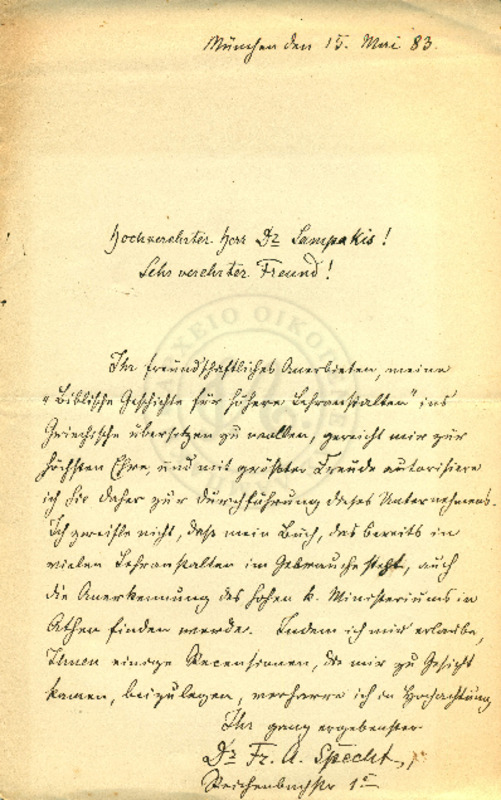 München den 15. Mai 83.
Hochverehrter Herr Dr Lampakis!
Sehr verehrter Freund!
Ihr freundschaftliches Anerbieten, meine
"Biblische Geschichte für höhere Lehranstalten" ins
Griechische übersetzen zu wollen, gereicht mir zur
höchsten Ehre, und mit größter Freude autorisiere
ich Sie daher zur Durchführung dieses Unternehmens.
Ich zweifle nicht, daß mein Buch, das bereits in
vielen Lehranstalten im Gebrauche steht, auch
die Anerkennung des hohen k. Ministeriums in
Athen finden werde. Indem ich mir erlaube,
Ihnen einige Recensionen, die mir zu Gesicht
kamen, beizulegen, verharre ich in Hochachtung
Ihr ganz ergebenster
Dr Fr. A. Specht,
Reichenbachstr
ΑΡΧΕΙΟ ΟΙΚΟΓ